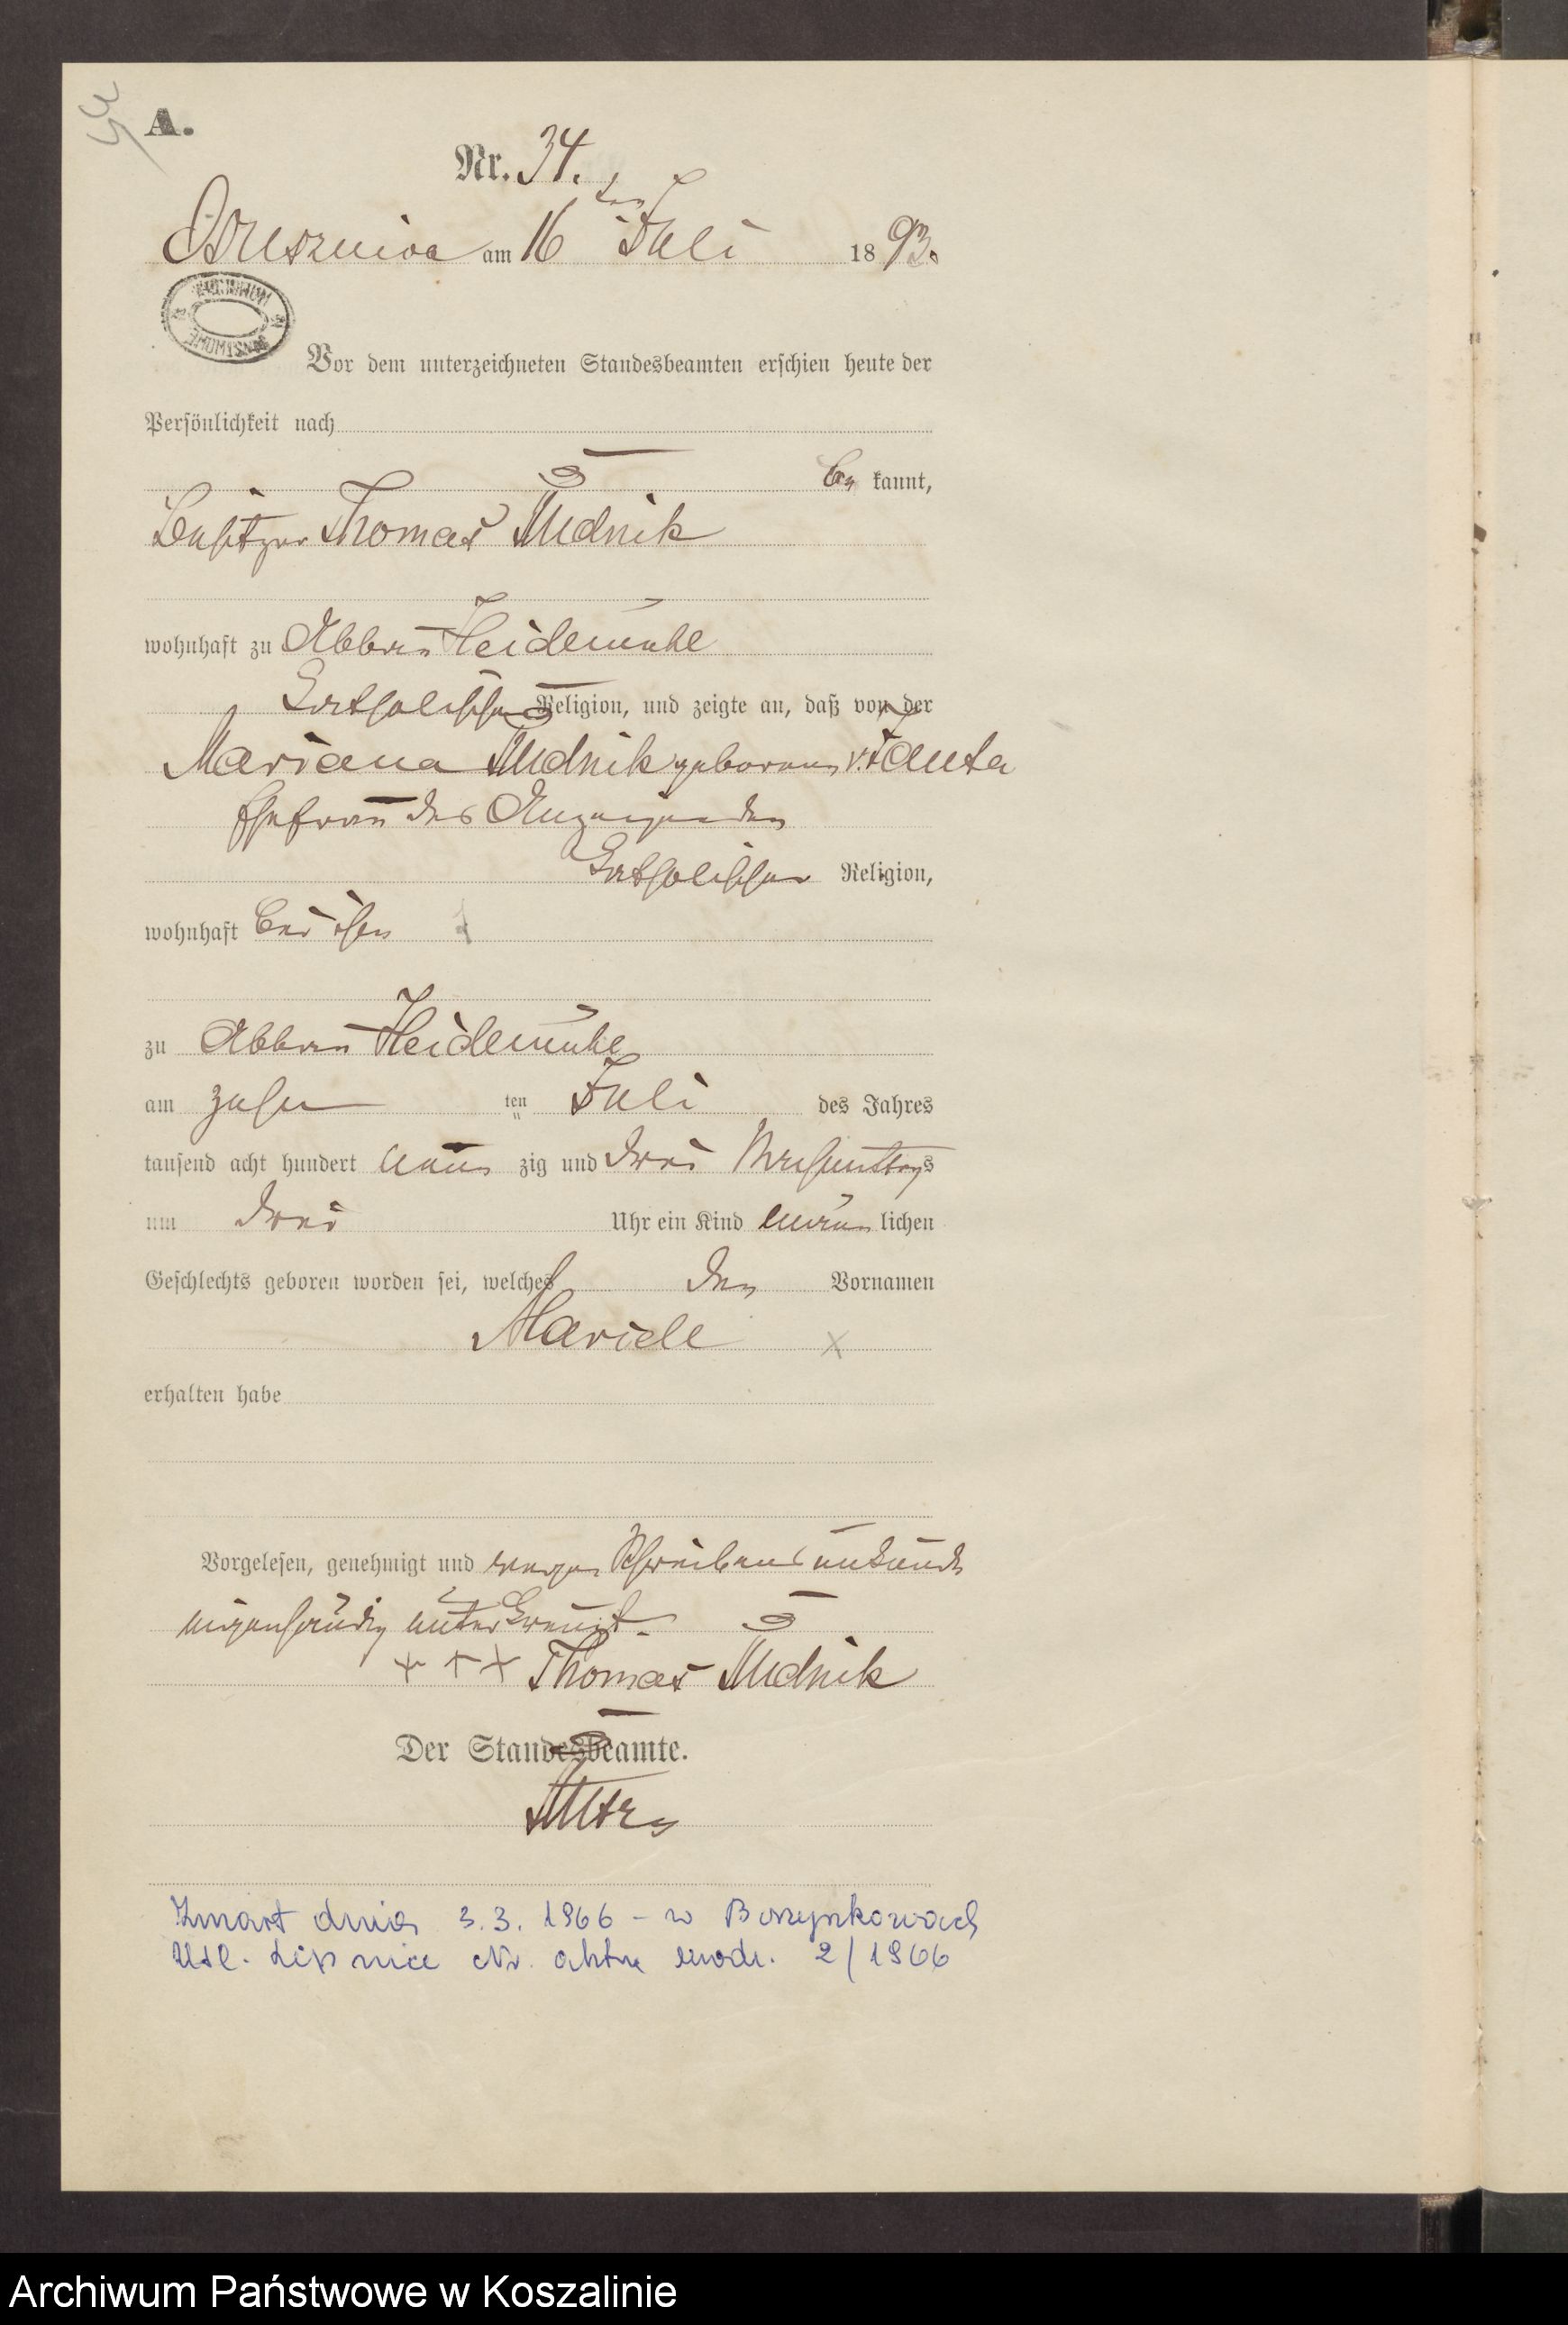 A.
Nr. 34.
am 16 ten Juli 1893.
Vor dem unterzeichneten Standesbeamten erschien heute der
Persönlichkeit nach
be kannt,
Besitzer Thomas Studnik
wohnhaft zu Abbau Heidemühl
katholischer Religion, und zeigte an, daß von der
Mariana Studnik geborene v.
Ehefrau des Anzeigenden
katholischer Religion,
wohnhaft bei ihm
zu Abbau Heidemühl
am zehn ten Juli des Jahres
tausend acht hundert neun zig und drei Nachmittags
um drei Uhr ein Kind männ lichen
Geschlechts geboren worden sei, welches den Vornamen
erhalten habe
Vorgelesen, genehmigt und wegen Schreibensunkunde
eigenhändig unterkreuzt.
+++ Thomas Studnik
Der Standesbeamte.
Zmarł dnia 3.3.1966 - w
USC. Lipnica Nr. aktu 2/1966
Archiwum Państwowe w Koszalinie